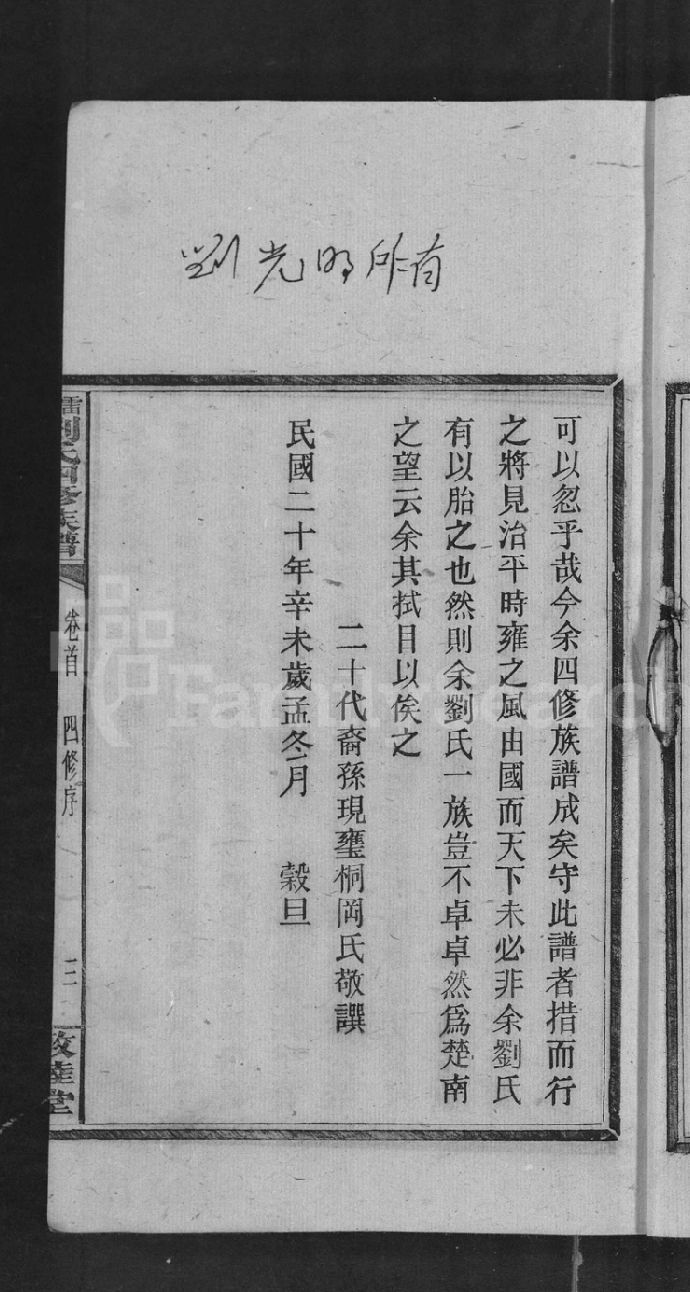 劉光明所有
可以忽乎哉今余四修族譜成矣守此譜者措而行
之將見治平時雍之風由國而天下未必非余劉氏
有以胎之也然則余劉氏一族豈不卓卓然爲楚南
之望云余其拭目以俟之
二十代裔孫現璽桐岡氏敬譔
民國二十年辛未歲孟冬月 穀旦
劉氏四修族譜
卷首 四修序 三
敦睦堂